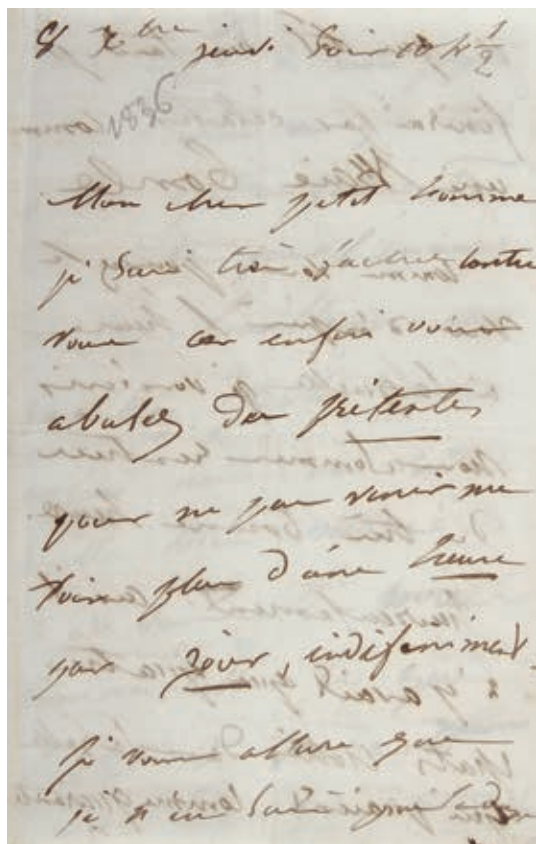 8 Xbre jeudi soir 10 h ½
1836
Mon cher petit homme
je suis très fachée contre
vous car enfin vous
abusez des prétextes
pour ne pas venir me
voir plus d'une heure
par jour, indéfiniment.
je vous assure que
je n'en suis